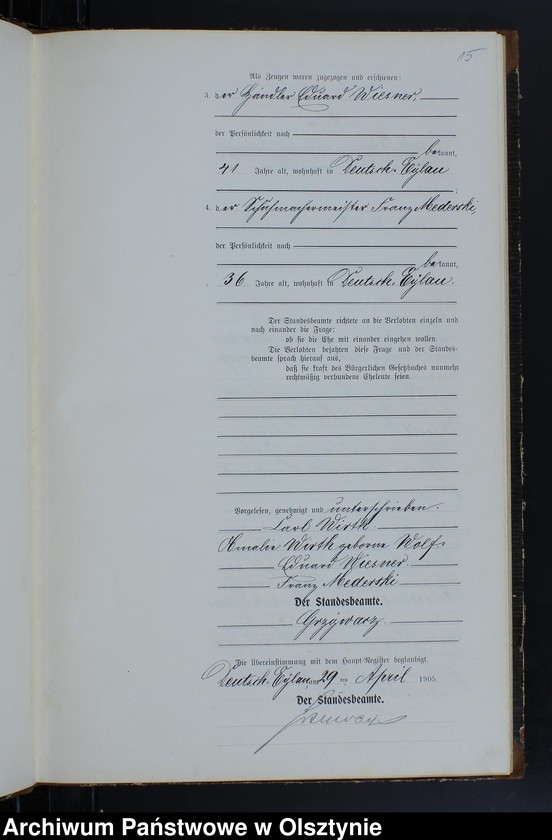 15
Als Zeugen waren zugezogen und erschienen:
3. der Händler Eduard Wiesner,
der Persönlichkeit nach
bekannt,
41 Jahre alt, wohnhaft in Deutsch. Eylau
;
4. der Schuhmachermeister Franz Mederski,
der Persönlichkeit nach
bekannt,
36 Jahre alt, wohnhaft in Deutsch. Eylau.
Der Standesbeamte richtete an die Verlobten einzeln und
nach einander die Frage:
ob sie die Ehe mit einander eingehen wollen.
Die Verlobten bejahten diese Frage und der Standes-
beamte sprach hierauf aus,
daß sie kraft des Bürgerlichen Gesetzbuches nunmehr
rechtmäßig verbundene Eheleute seien.
Vorgelesen, genehmigt und unterschrieben.
Carl Wirth.
Amalie Wirth geborne Wolf.
Eduard Wiesner.
Franz Mederski
Der Standesbeamte.
Grzywacz.
Die Übereinstimmung mit dem Haupt-Register beglaubigt.
Deutsch. Eylau, am 29 ten April 1905.
Der Standesbeamte.
Archiwum Państwowe w Olsztynie